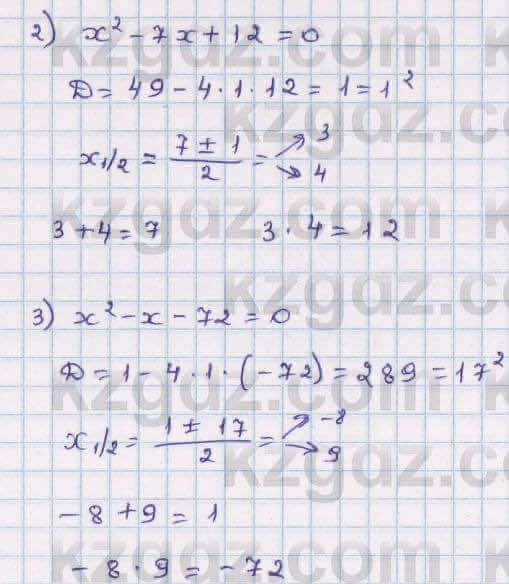 2) x² - 7x + 12 = 0
D = 49 - 4 · 1 · 12 = 1 = 1²
x₁/₂ = (7 ± 1)/2 = ↗ 3 ↘ 4
3 + 4 = 7    3 · 4 = 12
3) x² - x - 72 = 0
D = 1 - 4 · 1 · (-72) = 289 = 17²
x₁/₂ = (1 ± 17)/2 = ↗ -8 ↘ 9
-8 + 9 = 1
-8 · 9 = -72
kzgdz.com